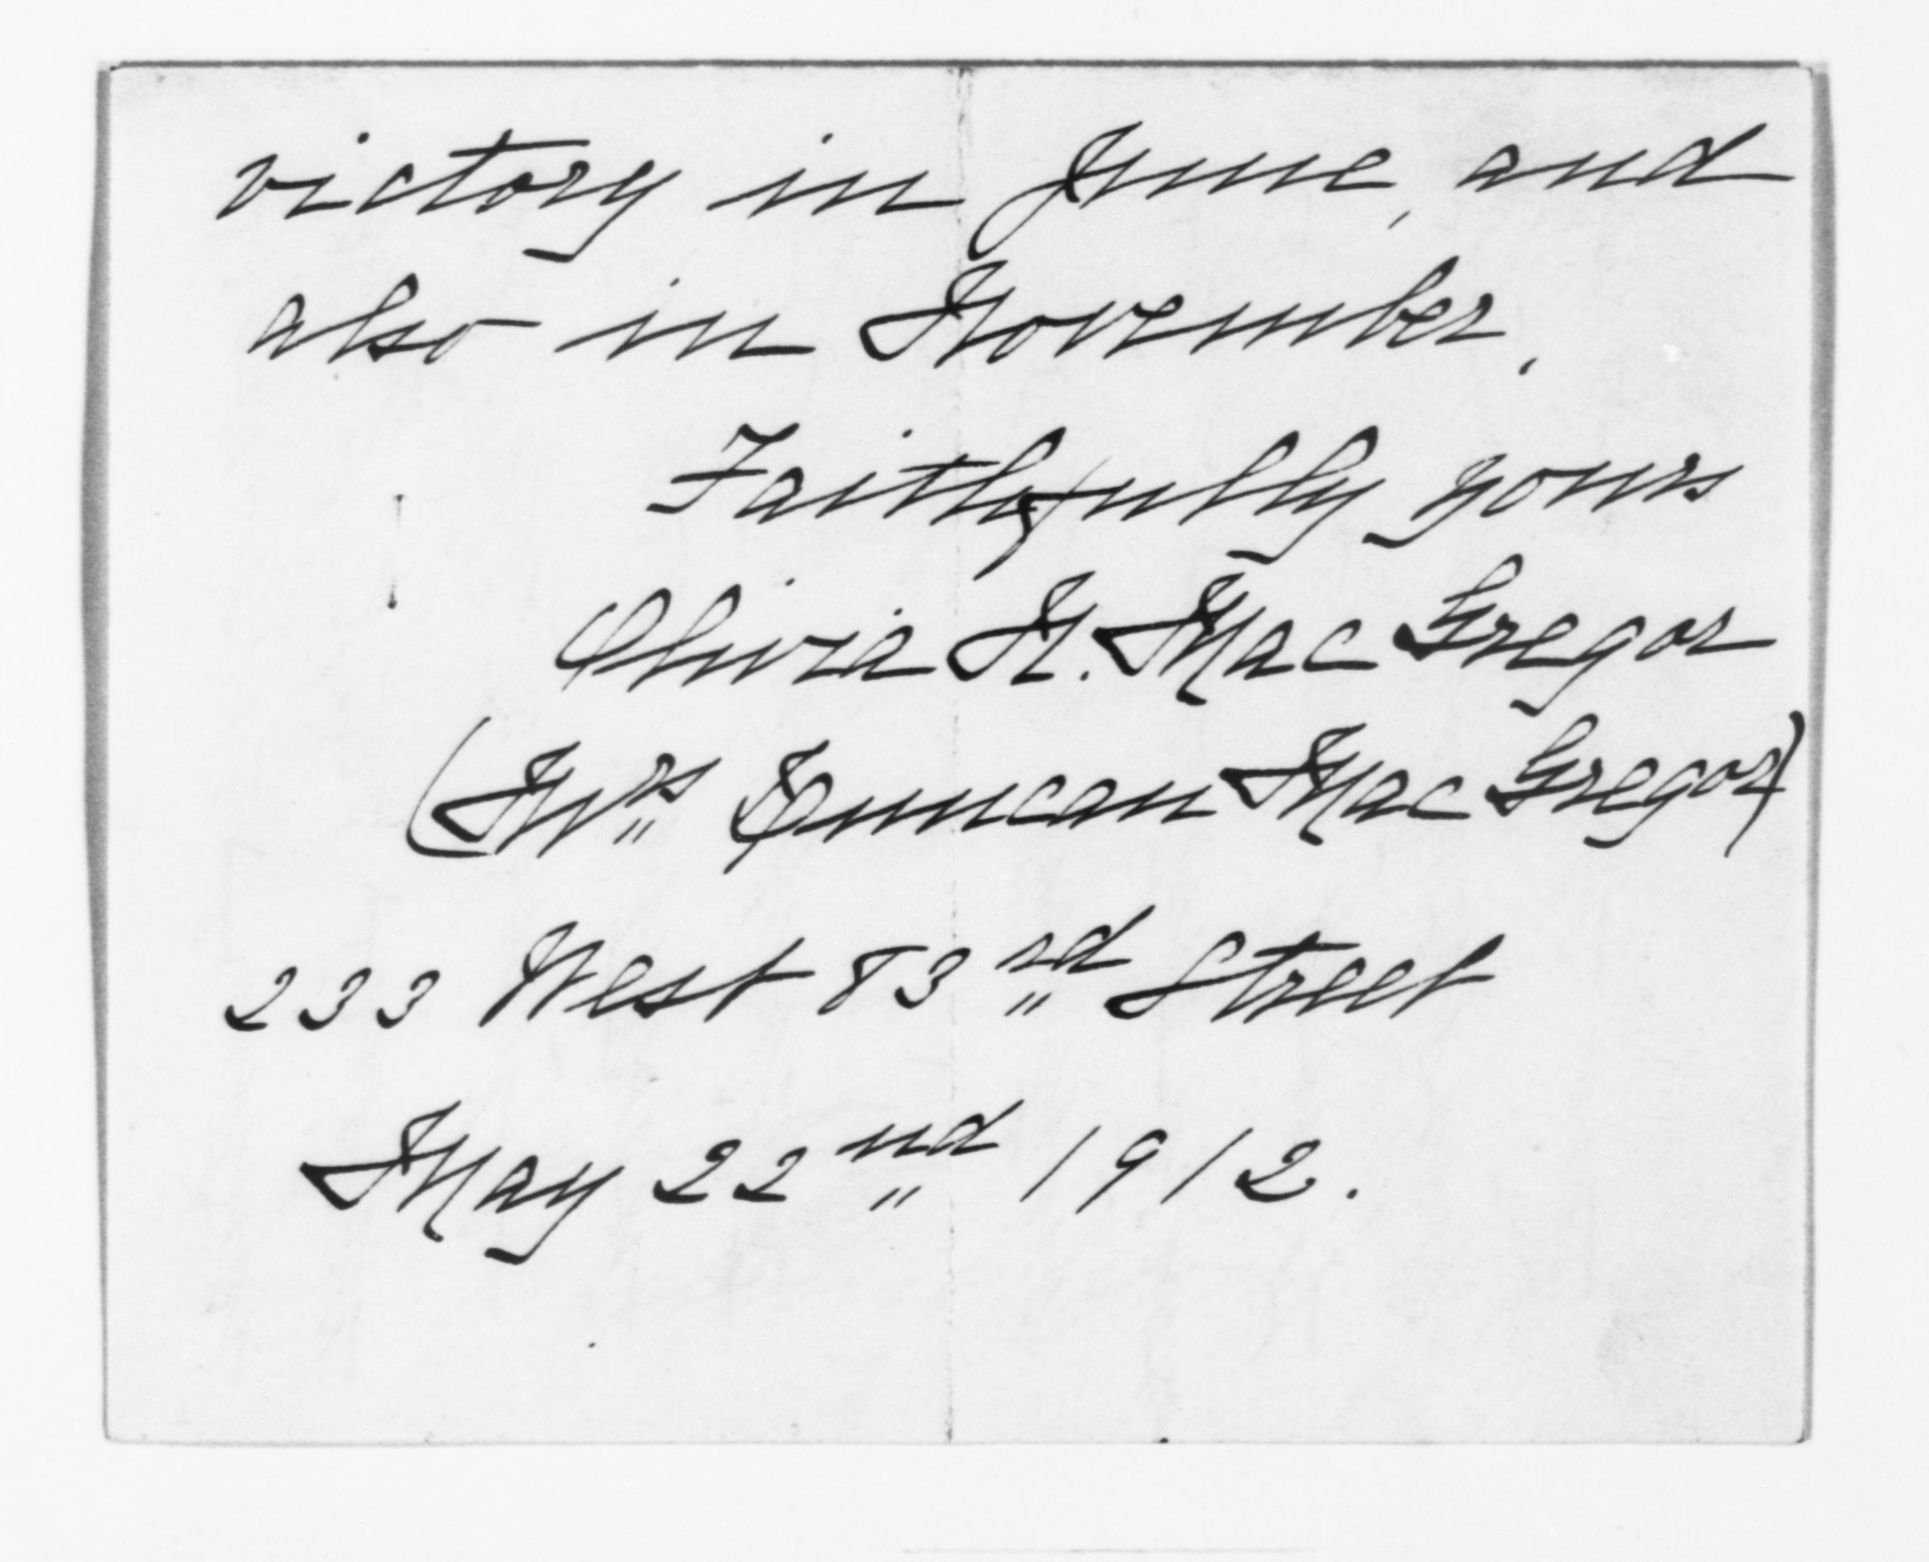 victory in June, and
also in November.
Faithfully yours
Olivia N. Mac Gregor
(Mrs Duncan Mac Gregor)
233 West 83rd Street
May 22nd 1912.